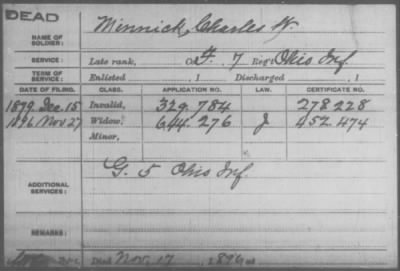 DEAD
NAME OF SOLDIER: Minnick, Charles W.
SERVICE: Late rank, Co. G. 7 Reg't Ohio Inf
TERM OF SERVICE: Enlisted , 1 Discharged , 1
DATE OF FILING. CLASS. APPLICATION NO. LAW. CERTIFICATE NO.
1879 Dec. 15 Invalid, 329.784 278228
1896 Nov 27 Widow, 644.276 J 452.474
Minor,
ADDITIONAL SERVICES: G. 5 Ohio Inf.
REMARKS:
Died Nov. 17 1896